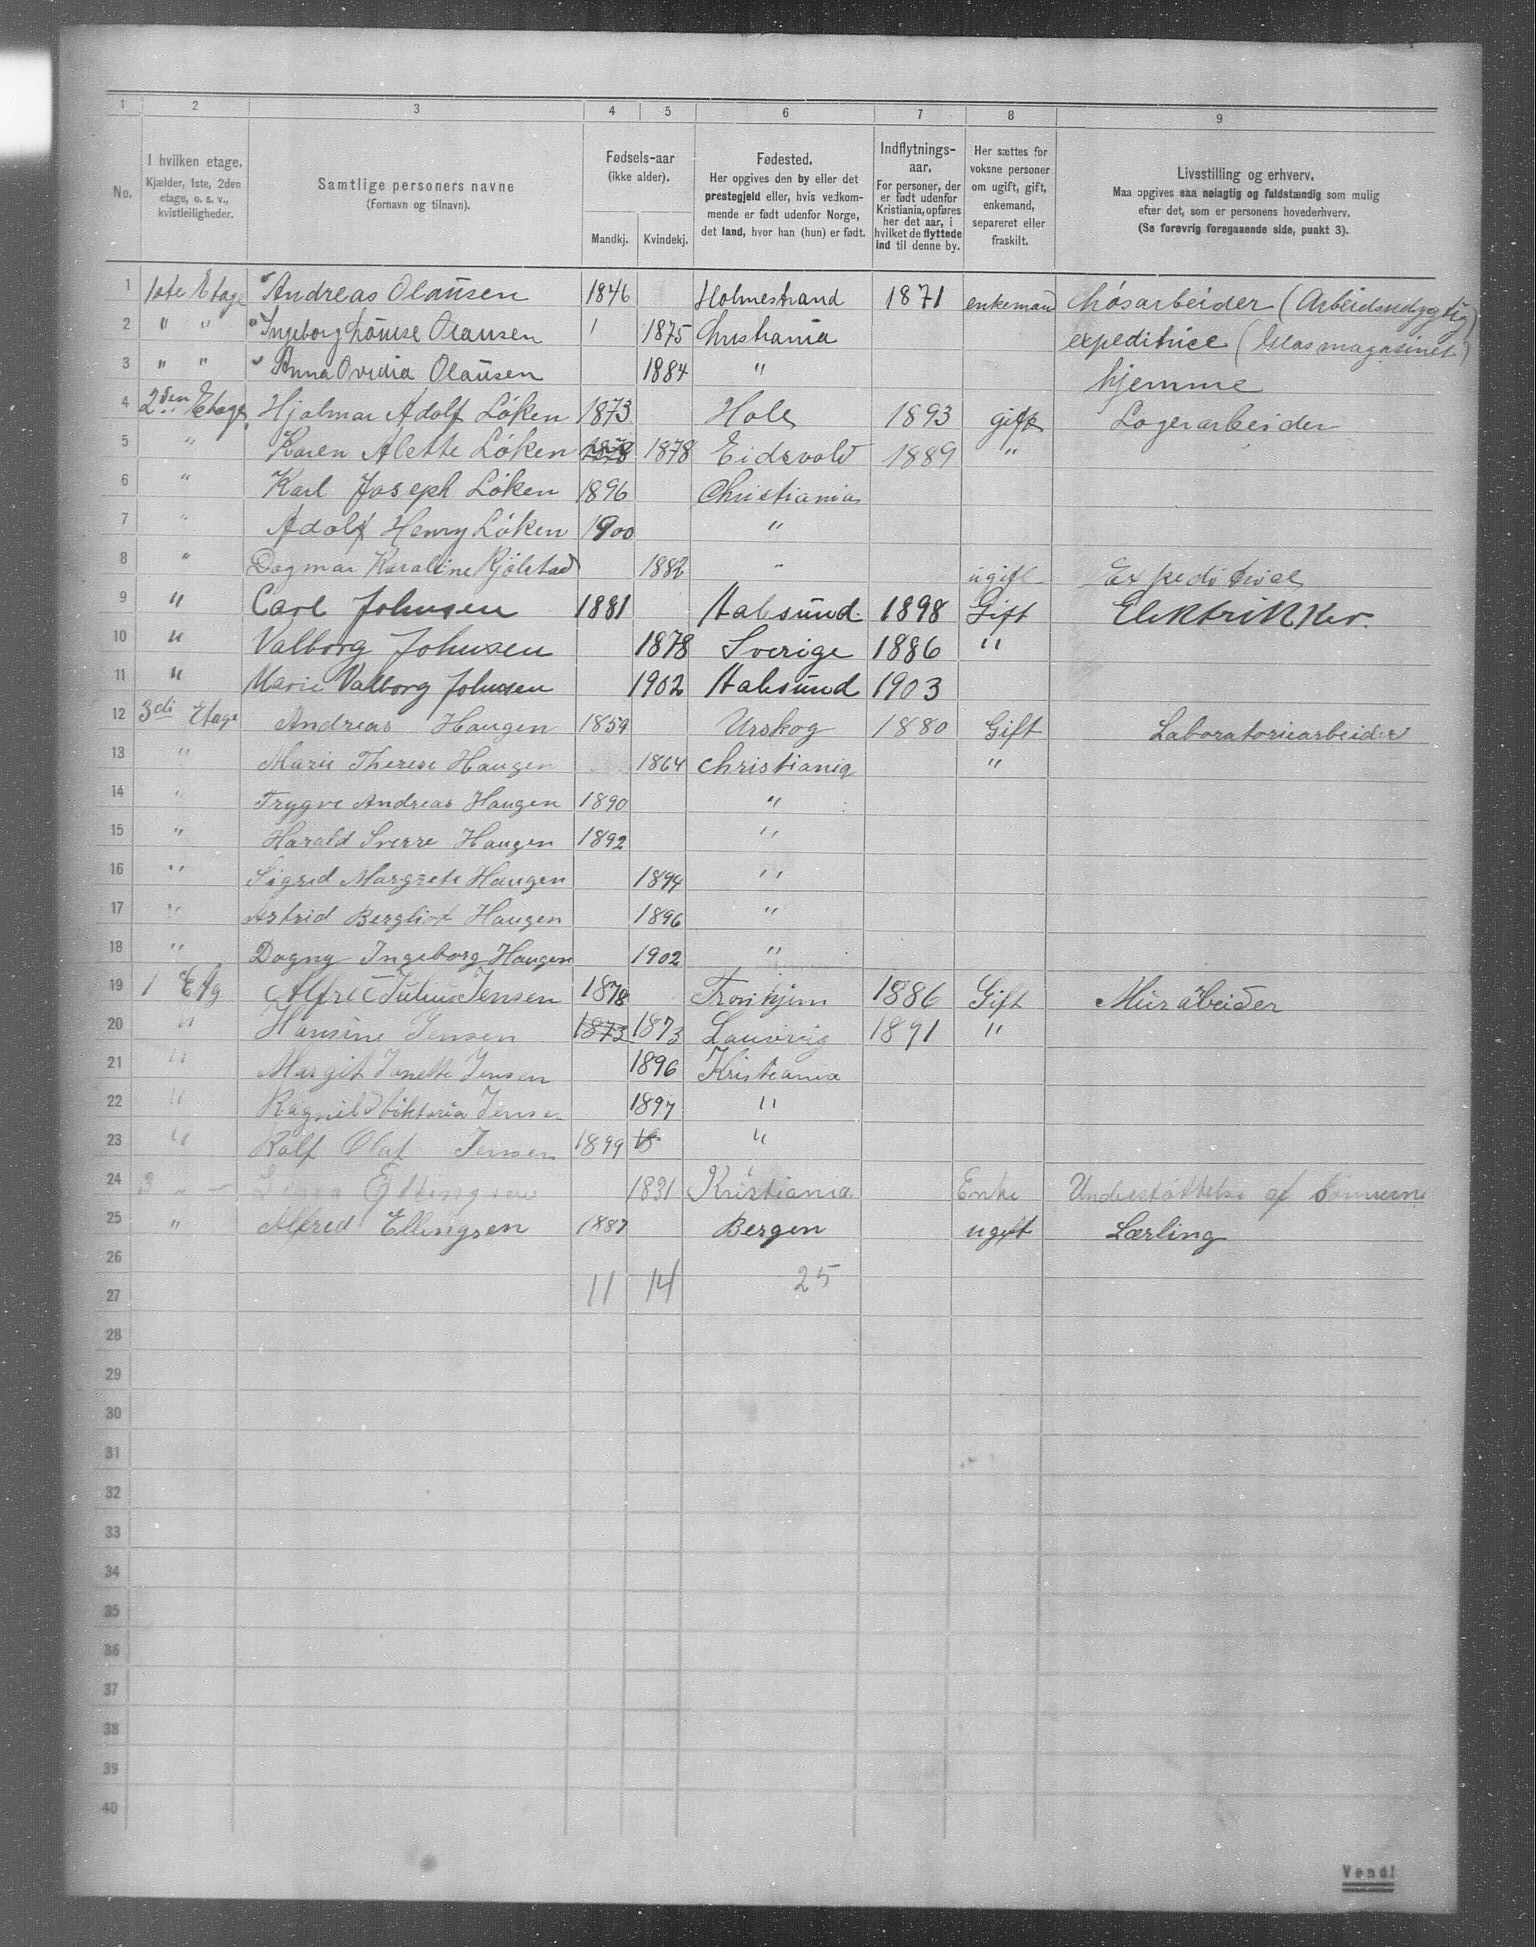 1 2 3 4 5 6 7 8 9
No.
I hvilken etage.
Kjælder, 1ste, 2den
etage, o. s. v.,
kvistleiligheder.
Samtlige personers navne
(Fornavn og tilnavn).
Fødsels-aar
(ikke alder).
Mandkj. Kvindekj.
Fødested.
Her opgives den by eller det
prestegjeld eller, hvis vedkom-
mende er født udenfor Norge,
det land, hvor han (hun) er født.
Indflytnings-
aar.
For personer, der
er født udenfor
Kristiania, opføres
her det aar, i
hvilket de flyttede
ind til denne by.
Her sættes for
voksne personer
om ugift, gift,
enkemand,
separeret eller
fraskilt.
Livsstilling og erhverv.
Maa opgives saa nøiagtig og fuldstændig som mulig
efter det, som er personens hovederhverv.
(Se forøvrig foregaaende side, punkt 3).
1 1ste Etage Andreas Olaüsen 1846 Holmestrand 1871 enkemand Løsarbeider (Arbeidsudygtig)
2 " " Ingeborg Loüise Olausen 1875 Christiania expeditrice (Glasmagasinet)
3 " " Anna Ovidia Olaüsen 1884 " hjemme
4 2den Etage Hjalmar Adolf Løken 1873 Hole 1893 gift Lagerarbeider
5 " Karen Alette Løken 1878 1878 Eidsvold 1889 "
6 " Karl Joseph Løken 1896 Christiania
7 " Adolf Henry Løken 1900 "
8 " Dagmar Karoline Kjølstad 1882 " ugift
9 " Carl Johnsen 1881 Aalesund 1898 Gift Elektrikker.
10 " Valborg Johnsen 1878 Sverige 1886 "
11 " Marie Valborg Johnsen 1902 Aalesund 1903
12 3di Etage Andreas Haugen 1859 Urskog 1880 Gift Laboratoriearbeider
13 " Marie Therese Haugen 1864 Christiania "
14 " Trygve Andreas Haugen 1890 "
15 " Harald Sverre Haugen 1892 "
16 " Sigrid Margrete Haugen 1894 "
17 " Astrid Bergliot Haugen 1896 "
18 " Dagny Ingeborg Haugen 1902 "
19 1 Etg Alfred Julius Jensen 1878 Tronhjem 1886 Gift Mürarbeider
20 " Hansine Jensen 1873 1873 Laurvig 1891 "
21 " Margit Janette Jensen 1896 Kristiania
22 " Ragnild Viktoria Jensen 1897 "
23 " Ralf Olaf Jensen 1899 18 "
24 3 " 1831 Kristiania Enke Understøttelse af Sønnerne
25 " Alfred Ellingsen 1887 Bergen ugift Lærling
26
27 11 14 25
28
29
30
31
32
33
34
35
36
37
38
39
40
Vend!